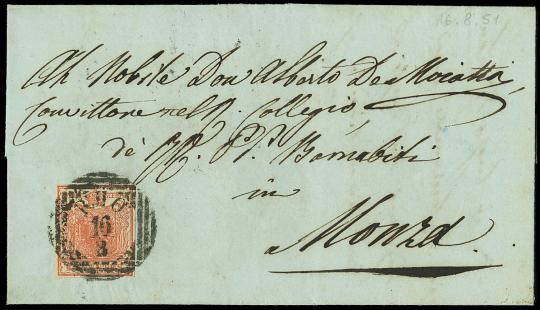 16.8.51
Al Nobile Don Alberto De
Convittore nel R. Collegio
de' RR. PP. Barnabiti
in
Monza
RHO
16
8